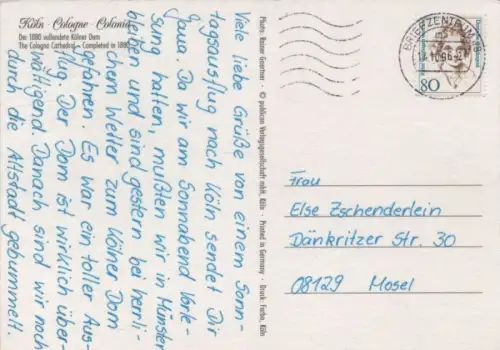 Köln · Cologne · Colonia
Der 1880 vollendete Kölner Dom
The Cologne Cathedral – Completed in 1880
Viele liebe Grüße von einem Sonn-
tagsausflug nach Köln sendet Dir
Gaua. Da wir am Sonnabend Vorle-
sung hatten, mußten wir in Münster
bleiben und sind gestern bei herrli-
chem Wetter zum Kölner Dom
gefahren. Es war ein toller Aus-
flug. Der Dom ist wirklich über-
wältigend. Danach sind wir noch
durch die Altstadt gebummelt.
Photo: Rainer Gaertner · © publicon Verlagsgesellschaft mbH, Köln · Printed in Germany · Druck: Farbo, Köln
BRIEFZENTRUM
80
Frau
Else Zschenderlein
Dänkritzer Str. 30
08129 Mosel